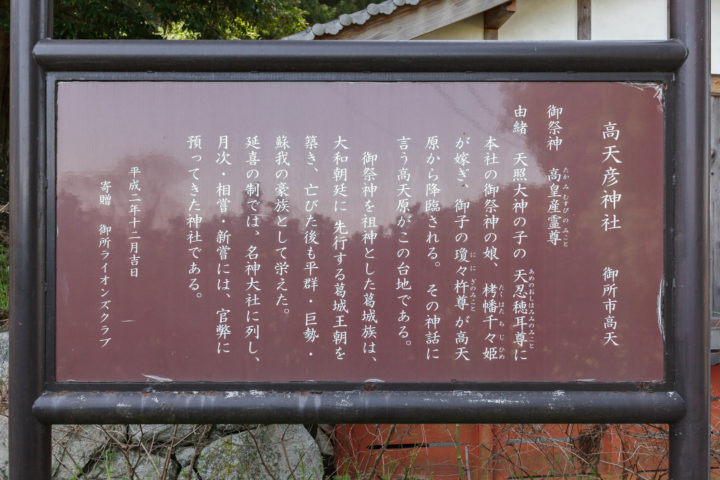 高天彦神社　御所市高天
御祭神　高皇産霊尊
たかみむすびのみこと
由緒　天照大神の子の　天忍穂耳尊に
あめのおしほみみのみこと
本社の御祭神の娘、栲幡千々姫
たくはたちぢひめ
が嫁ぎ、御子の瓊々杵尊が高天
ににぎのみこと
原から降臨される。その神話に
言う高天原がこの台地である。
御祭神を祖神とした葛城族は、
大和朝廷に　先行する葛城王朝を
築き、亡びた後も平群・巨勢・
蘇我の豪族として栄えた。
延喜の制では、名神大社に列し、
月次・相嘗・新嘗には、官弊に
預ってきた神社である。
平成二年十二月吉日
寄贈　御所ライオンズクラブ